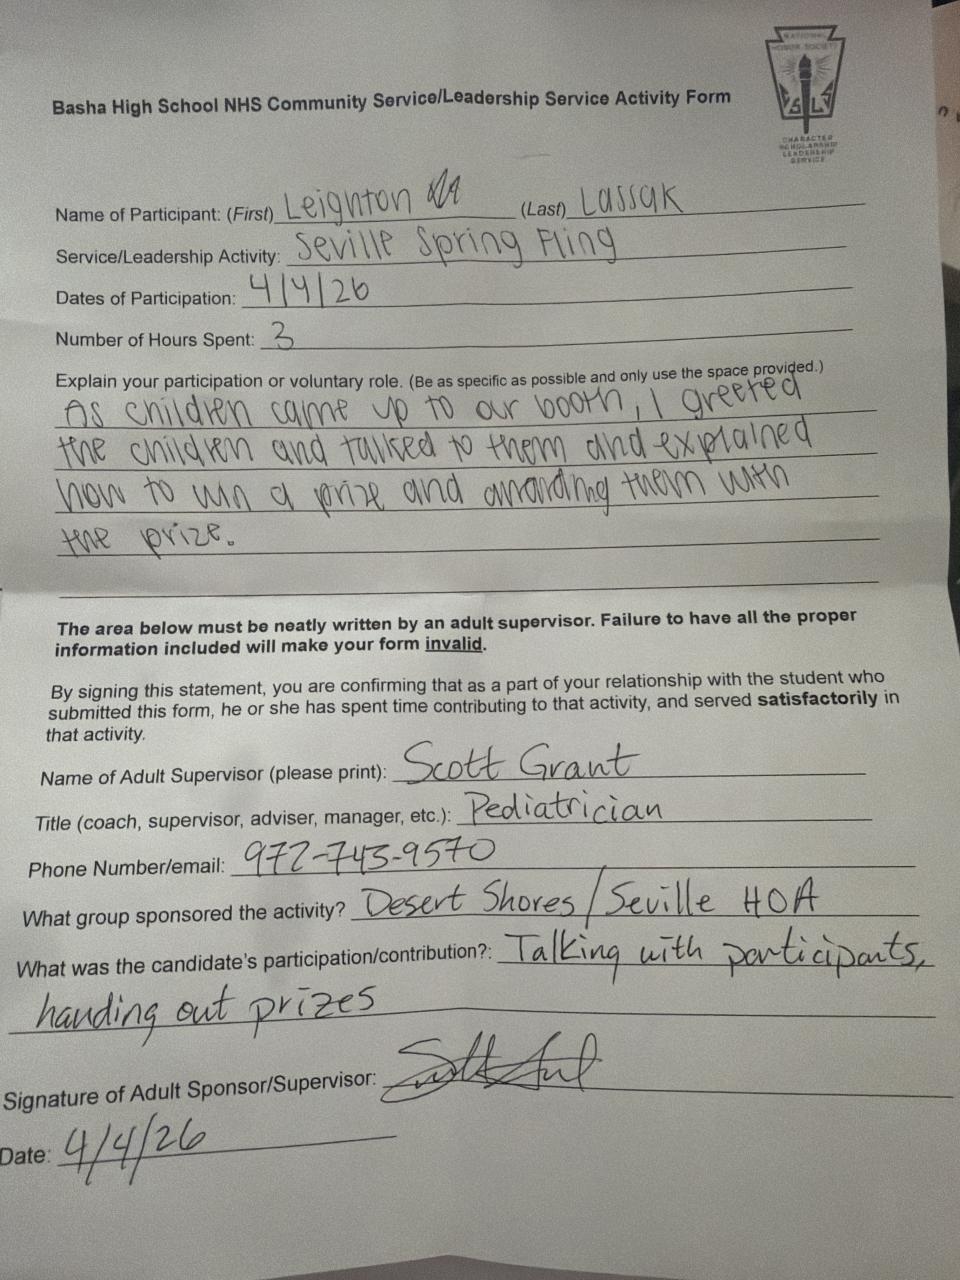 NATIONAL
HONOR SOCIETY
S L
CHARACTER
SCHOLARSHIP
LEADERSHIP
SERVICE
Basha High School NHS Community Service/Leadership Service Activity Form
Name of Participant: (First) Leighton (Last) Lassak
Service/Leadership Activity: Seville Spring Fling
Dates of Participation: 4/4/26
Number of Hours Spent: 3
Explain your participation or voluntary role. (Be as specific as possible and only use the space provided.)
As children came up to our booth, I greeted
the children and talked to them and explained
how to win a prize and awarding them with
the prize.
The area below must be neatly written by an adult supervisor. Failure to have all the proper
information included will make your form invalid.
By signing this statement, you are confirming that as a part of your relationship with the student who
submitted this form, he or she has spent time contributing to that activity, and served satisfactorily in
that activity.
Name of Adult Supervisor (please print): Scott Grant
Title (coach, supervisor, adviser, manager, etc.): Pediatrician
Phone Number/email: 972-743-9570
What group sponsored the activity? Desert Shores/Seville HOA
What was the candidate's participation/contribution?: Talking with participants,
handing out prizes
Signature of Adult Sponsor/Supervisor:
Date: 4/4/26